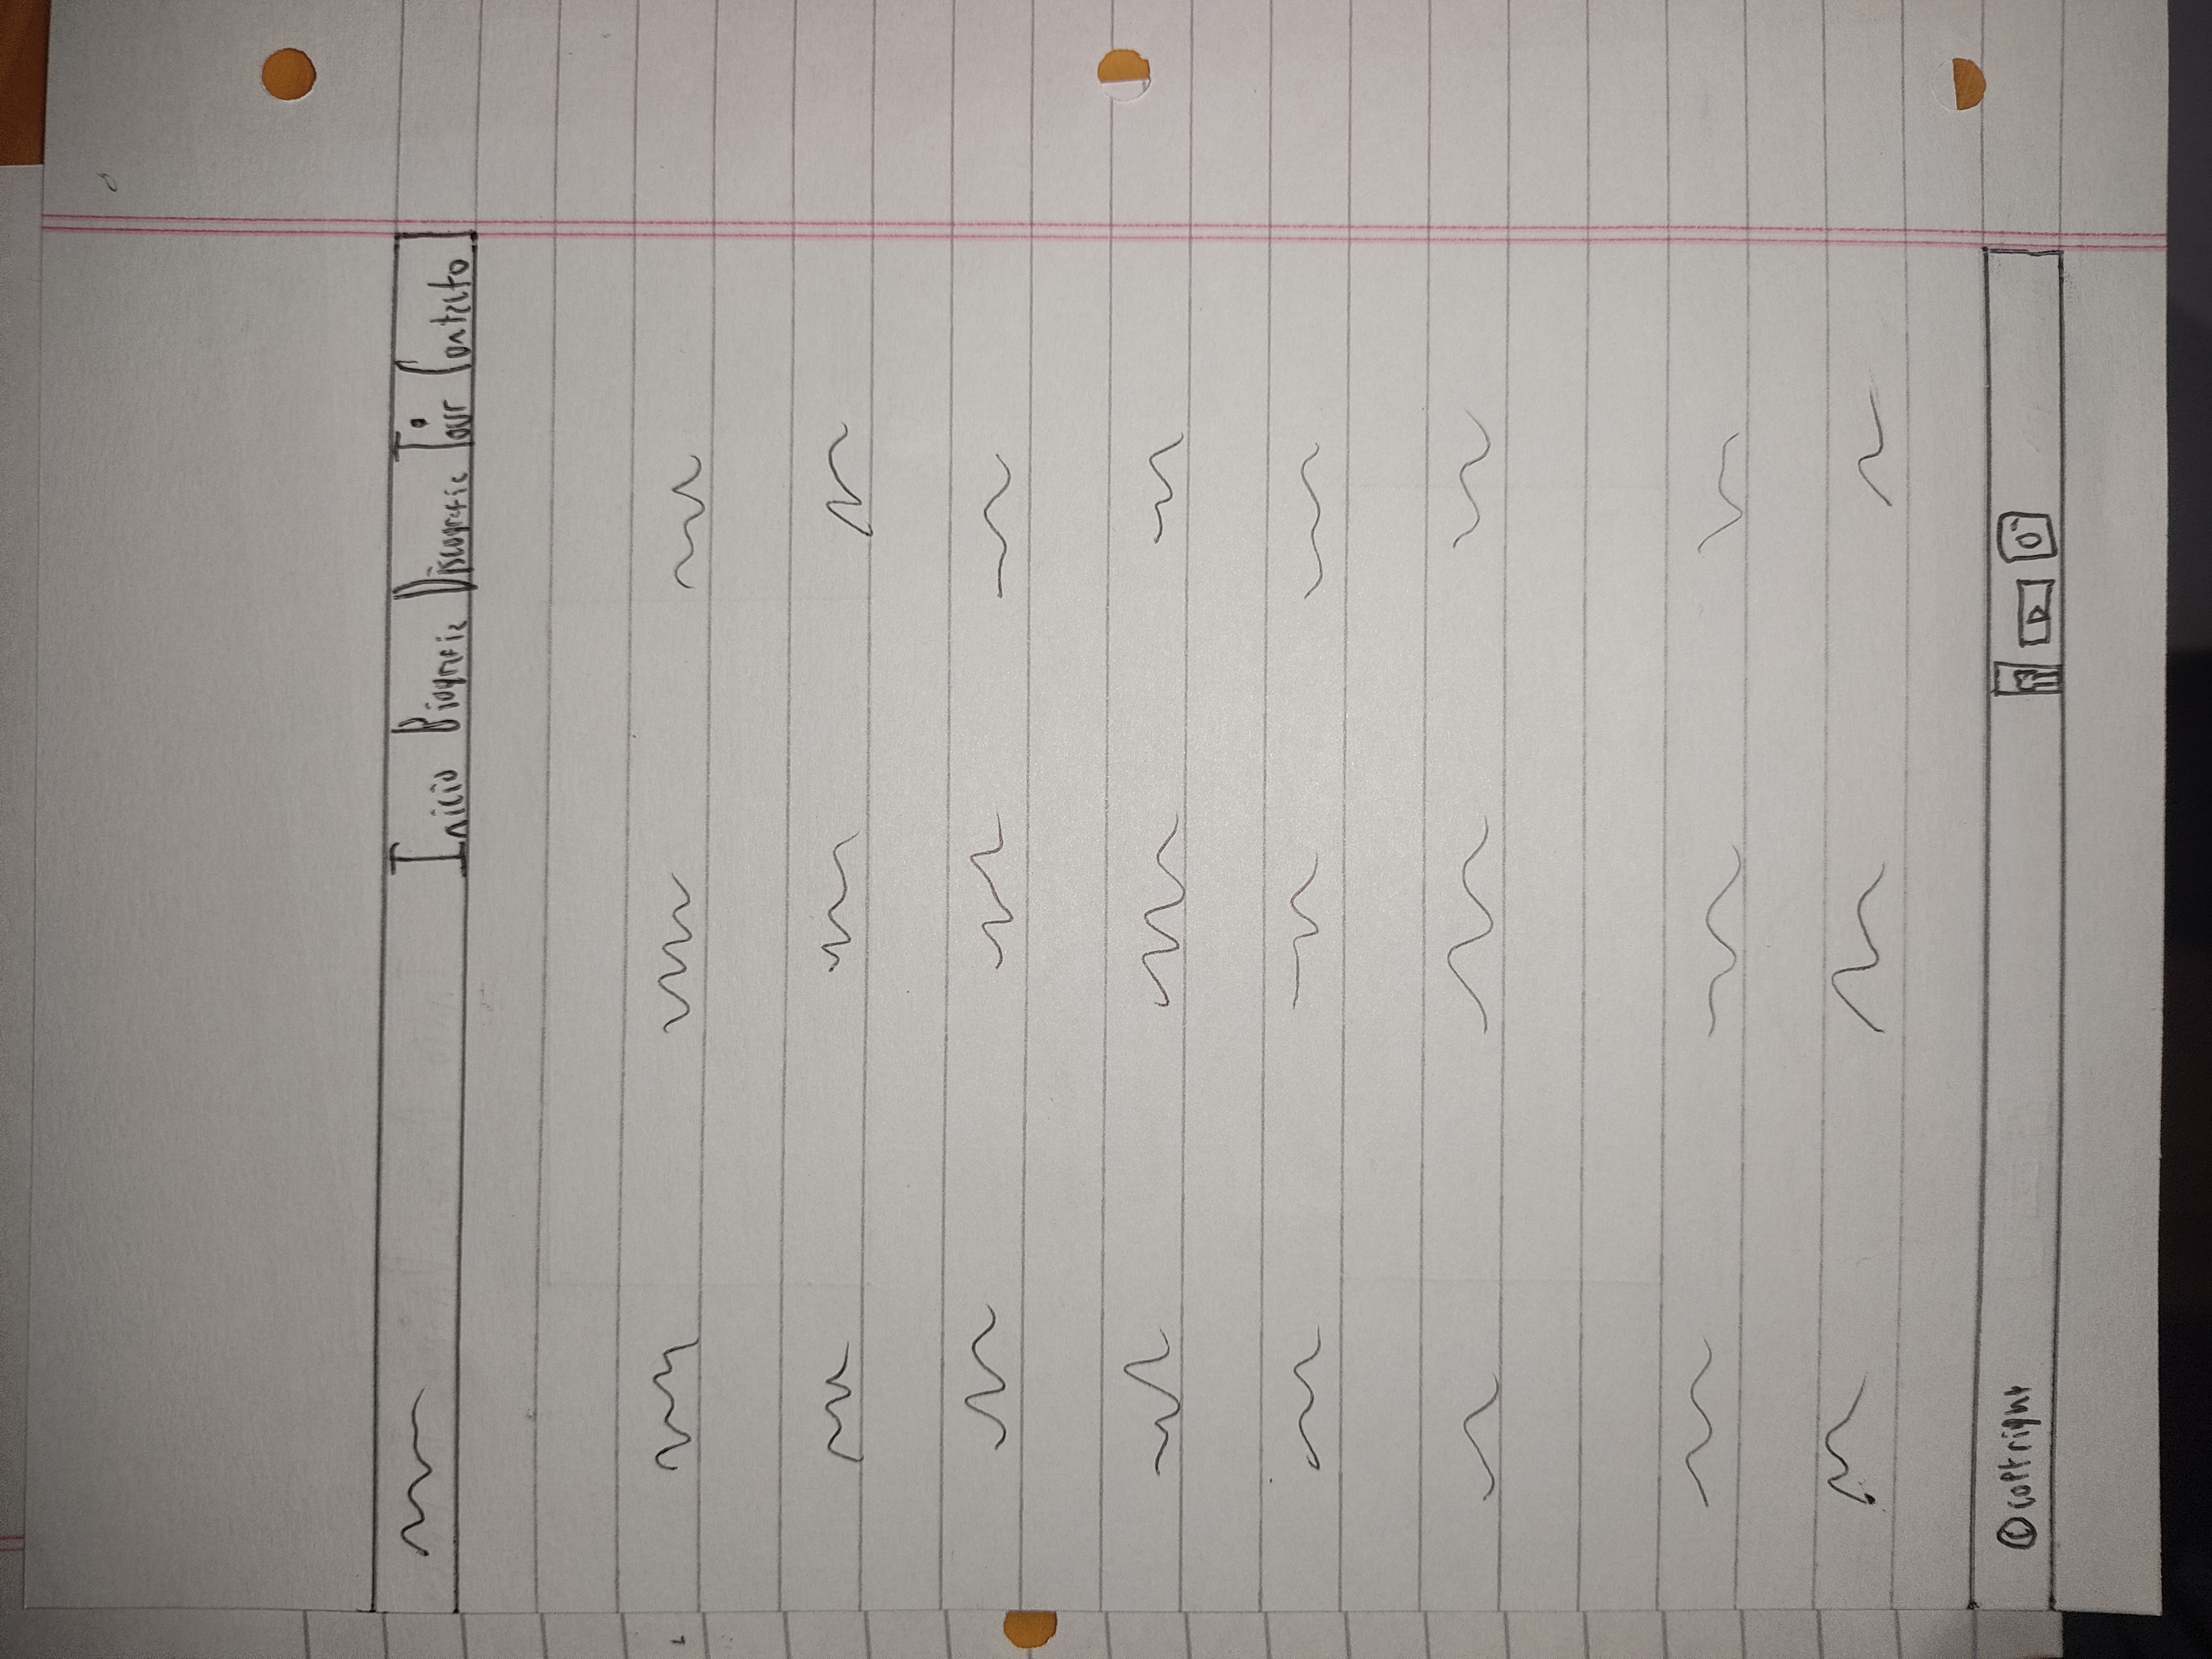 Inicio Biografia Discografia Tour Contacto
© coptright